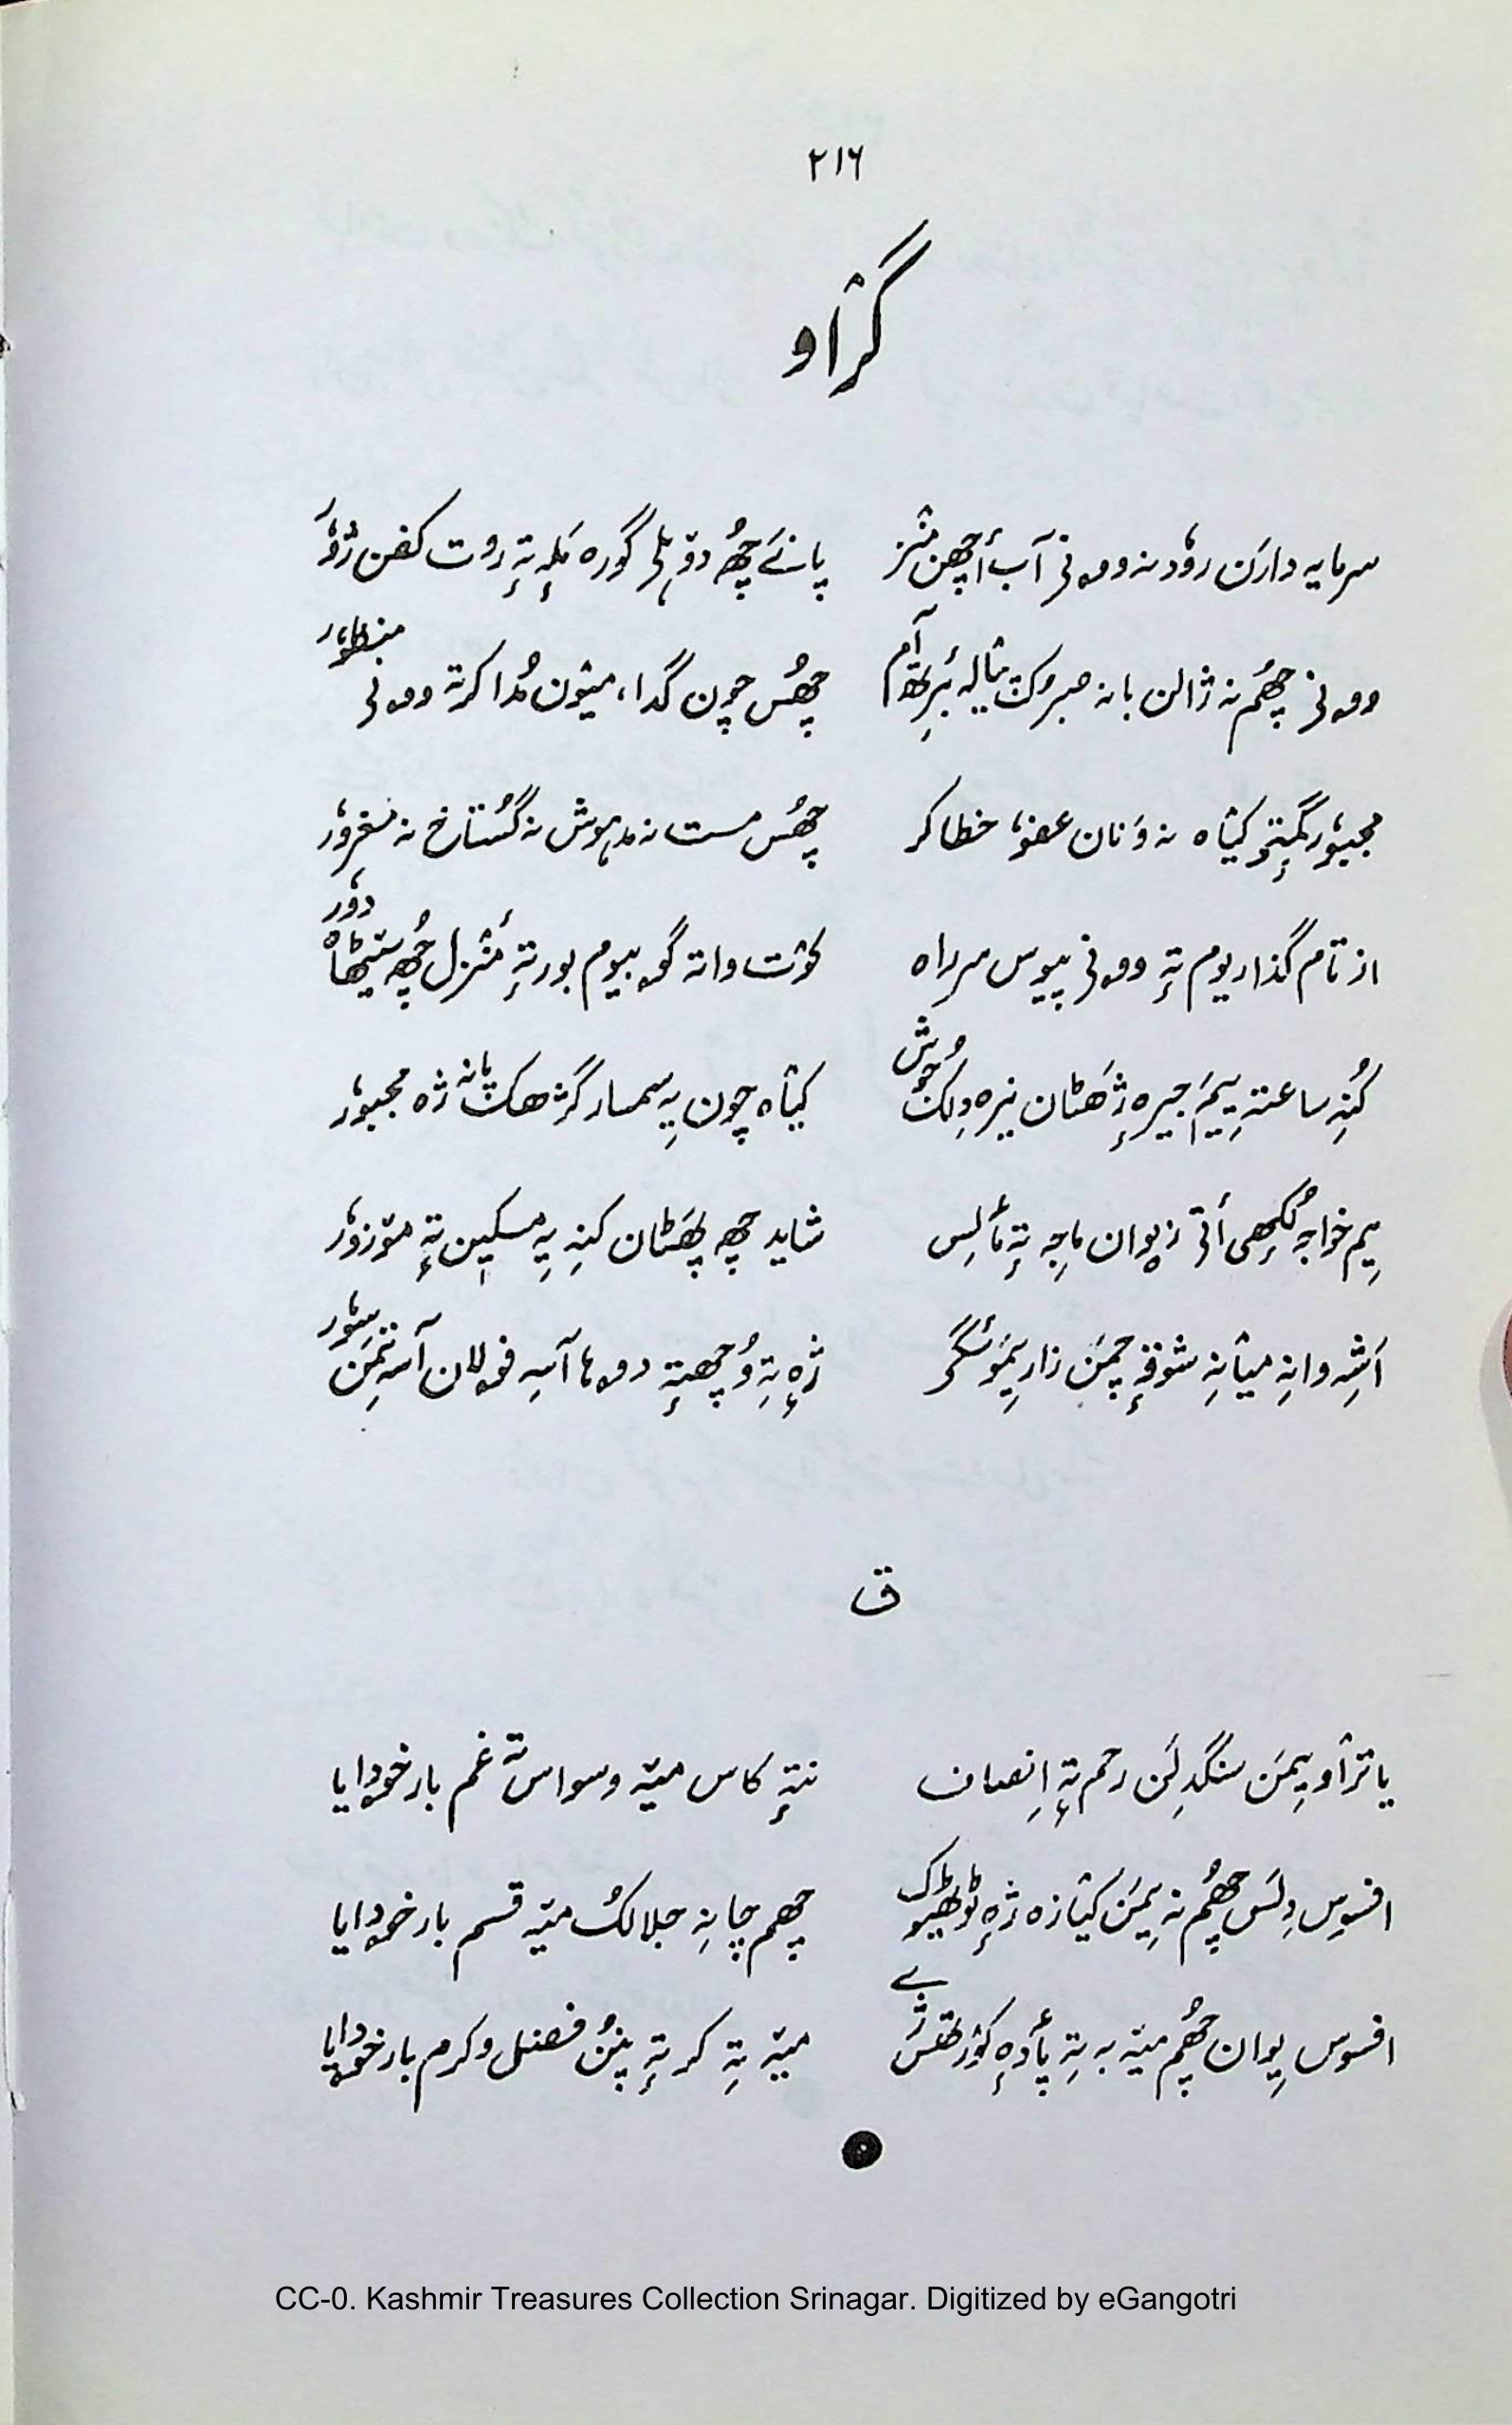 ۲۱۶
گراو
سرمایہ دارَن رۄد نہ وۄنۍ آب أچھن منٛز پانَے چھُ دۄہلی گورہ مَلہٕ تہٕ روت کفن ژوٗر
وۄنۍ چھُم نہ ژالن بانہ صبرُک پیالہ بٔرِتھ آم چھُس چون گدا، میون مُدا کرتہ وۄنۍ منظوٗر
مجبوٗر گمٕتۍ کیاہ نہ وَنان عفوٗ خطا کر چھُس مست نہ مدہوش نہ گُستاخ نہ مغروٗر
از تام گذاریوم تہٕ وۄنۍ پیوس سرِ راہ کوٚت واتہ گوبیوم بور تہٕ منٔزل چھُ سیٹھاہ دوٗر
کُنِہ ساعتہٕ یِمَے جیرہ ژٕھٹان نیرہ دِلُک جوش کیاہ چون یہِ سمسار گژھکھ پانہ ژہ مجبوٗر
یِم خواجہٕ لُکھٕی أتۍ زیوان ماجہِ تہٕ مٲلِس شاید چھِ پھَٹان کنہِ یہِ مسکین تہٕ موٚزوٗر
اَشہِ وانہِ میانہِ شوقہٕ چمَن زار یِمَو سٔگۍ ژٕہ تہِ وُچھتہٕ دوہا آسہِ فۄلان آسہ تِمَن سوٗر
ق
یا ترٛاو یِمَن سنگدِلَن رحم تہٕ اِنصاف نتہٕ کاس میہٚ وسواس تہٕ غم بار خۄدایا
افسوس دِلَس چھُم نہ یِمَن کیازہ ژٕہ ٹوٹھیوکھ چھم چانہِ جلالُک میہٚ قسم بار خۄدایا
افسوس یِوان چھُم میہٚ بہ تہِ پٲدہٕ کوٚرتھس ژےٚ میہٚ تہِ کر تہٕ پنُن فضل و کرم بار خۄدایا
CC-0. Kashmir Treasures Collection Srinagar. Digitized by eGangotri